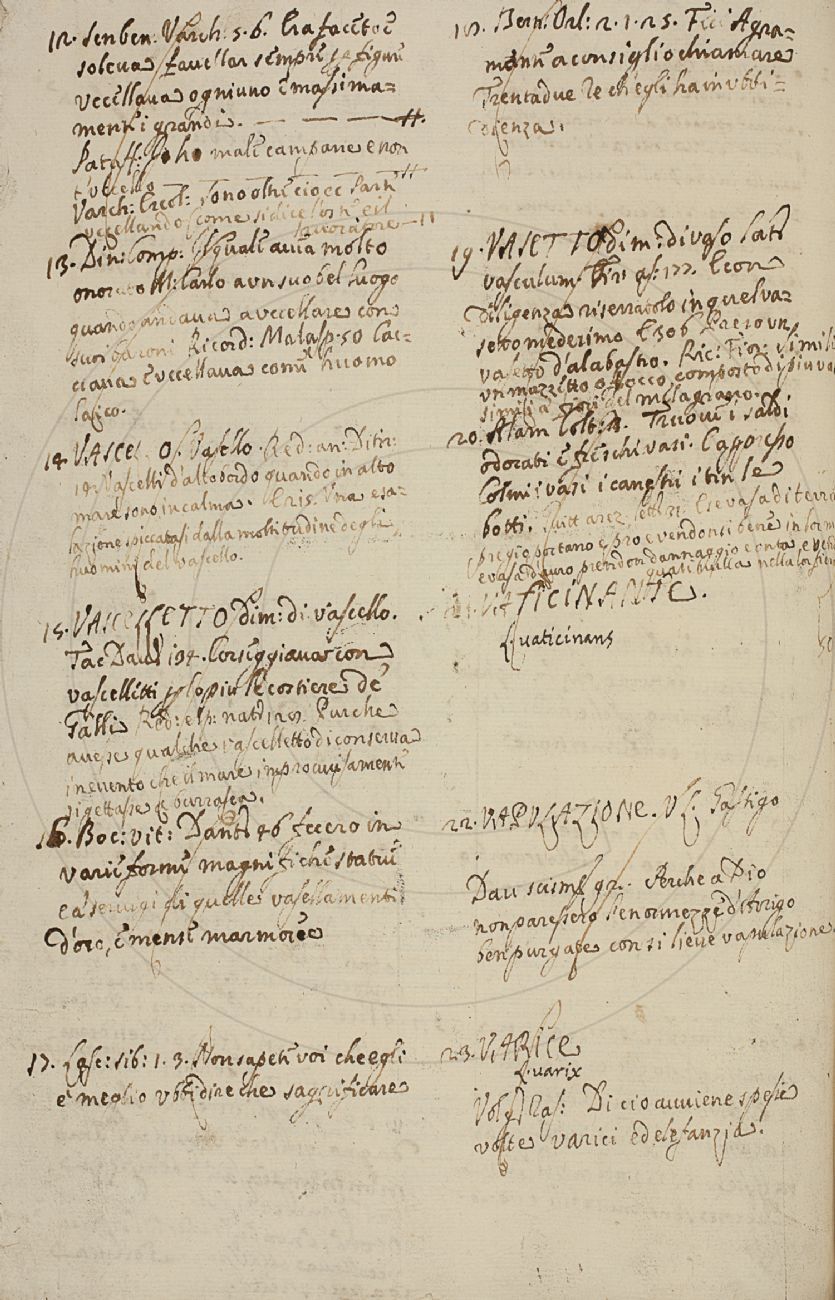 12. Sen ben: Varch: 5. 6. Era faceto e
soleva favellar sempre
uccellava ogniuno e massima=
mente i grandi. — — — #.
Pataff: Io ho male campane e non
l'uccello
Varch: Ercol: sono oltre cio ec. Parti #
uccellando come si dice l'oste e il
lavoratore — 11
13. Din: Comp: Il quale avea molto
onorato M: Carlo a un suo bel luogo
quando andava a uccellare con
suoi baroni Ricord: Malasp. 50 Cac=
ciava e uccellava come huomo
laico.
14. VASCEL. O s. Vasello. Red: an: Ditir:
Vascelli d'alto bordo quando in alto
mare sono in calma. Cris. Una esa=
lazione spiccatasi dalla moltitudine degli
huomini del vascello.
15. VASCELLETTO dim: di vascello.
Tac Dav: 194. Corseggiava con
vascelletti solo piu le costiere de
Galli Red: esp: nat: Purche
avesse qualche vascelletto di conserva
in evento che il mare improvvisamente
si gettasse a burrasca.
16. Boc: vit: Dant: 46 fecero in
varie forme magnifiche statue
e a servigi di quelle vasellamenti
d'oro, e mense marmoree
17. Lasc: sib: 1. 3. Non sapete voi che egli
e meglio ubbidire che sagrificare
18. Bern: Orl: 2. 1. 25. Feci Agra=
mante a consiglio chiamare
Trentadue Re ch'egli ha in ubbi=
dienza.
19. VASETTO dim: di vaso Lat
vasculum. Fir: as: 177. E con
diligenza riserratolo in quel va=
setto medesimo E 306 Presero un
vasetto d'alabastro. Ric: Fior: simili
un mazzetto o fiocco composto di piu va
simili a fiori del melagrano.
20. Alam Colt: Truovi i saldi
odorati e freschi vasi. E appresso
Colmi i vasi i canestri i tin le
botti. Guitt arez lett: 21 E se vasa di terra
pregio portano e pro e vendonsi bene in
e vasa d'auro prendon dannaggio e onta e
21. VATICINANTE.
L. vaticinans
22. VAPULAZIONE. V. Gastigo
Dav scism: 92. Perche a Dio
non paressero l'enormezze d'Arrigo
ben purgate con si lieve vapulazione
23. VARICE
L. varix
Volg: Ras: Di cio avviene spesse
volte varici ed elefanzia.